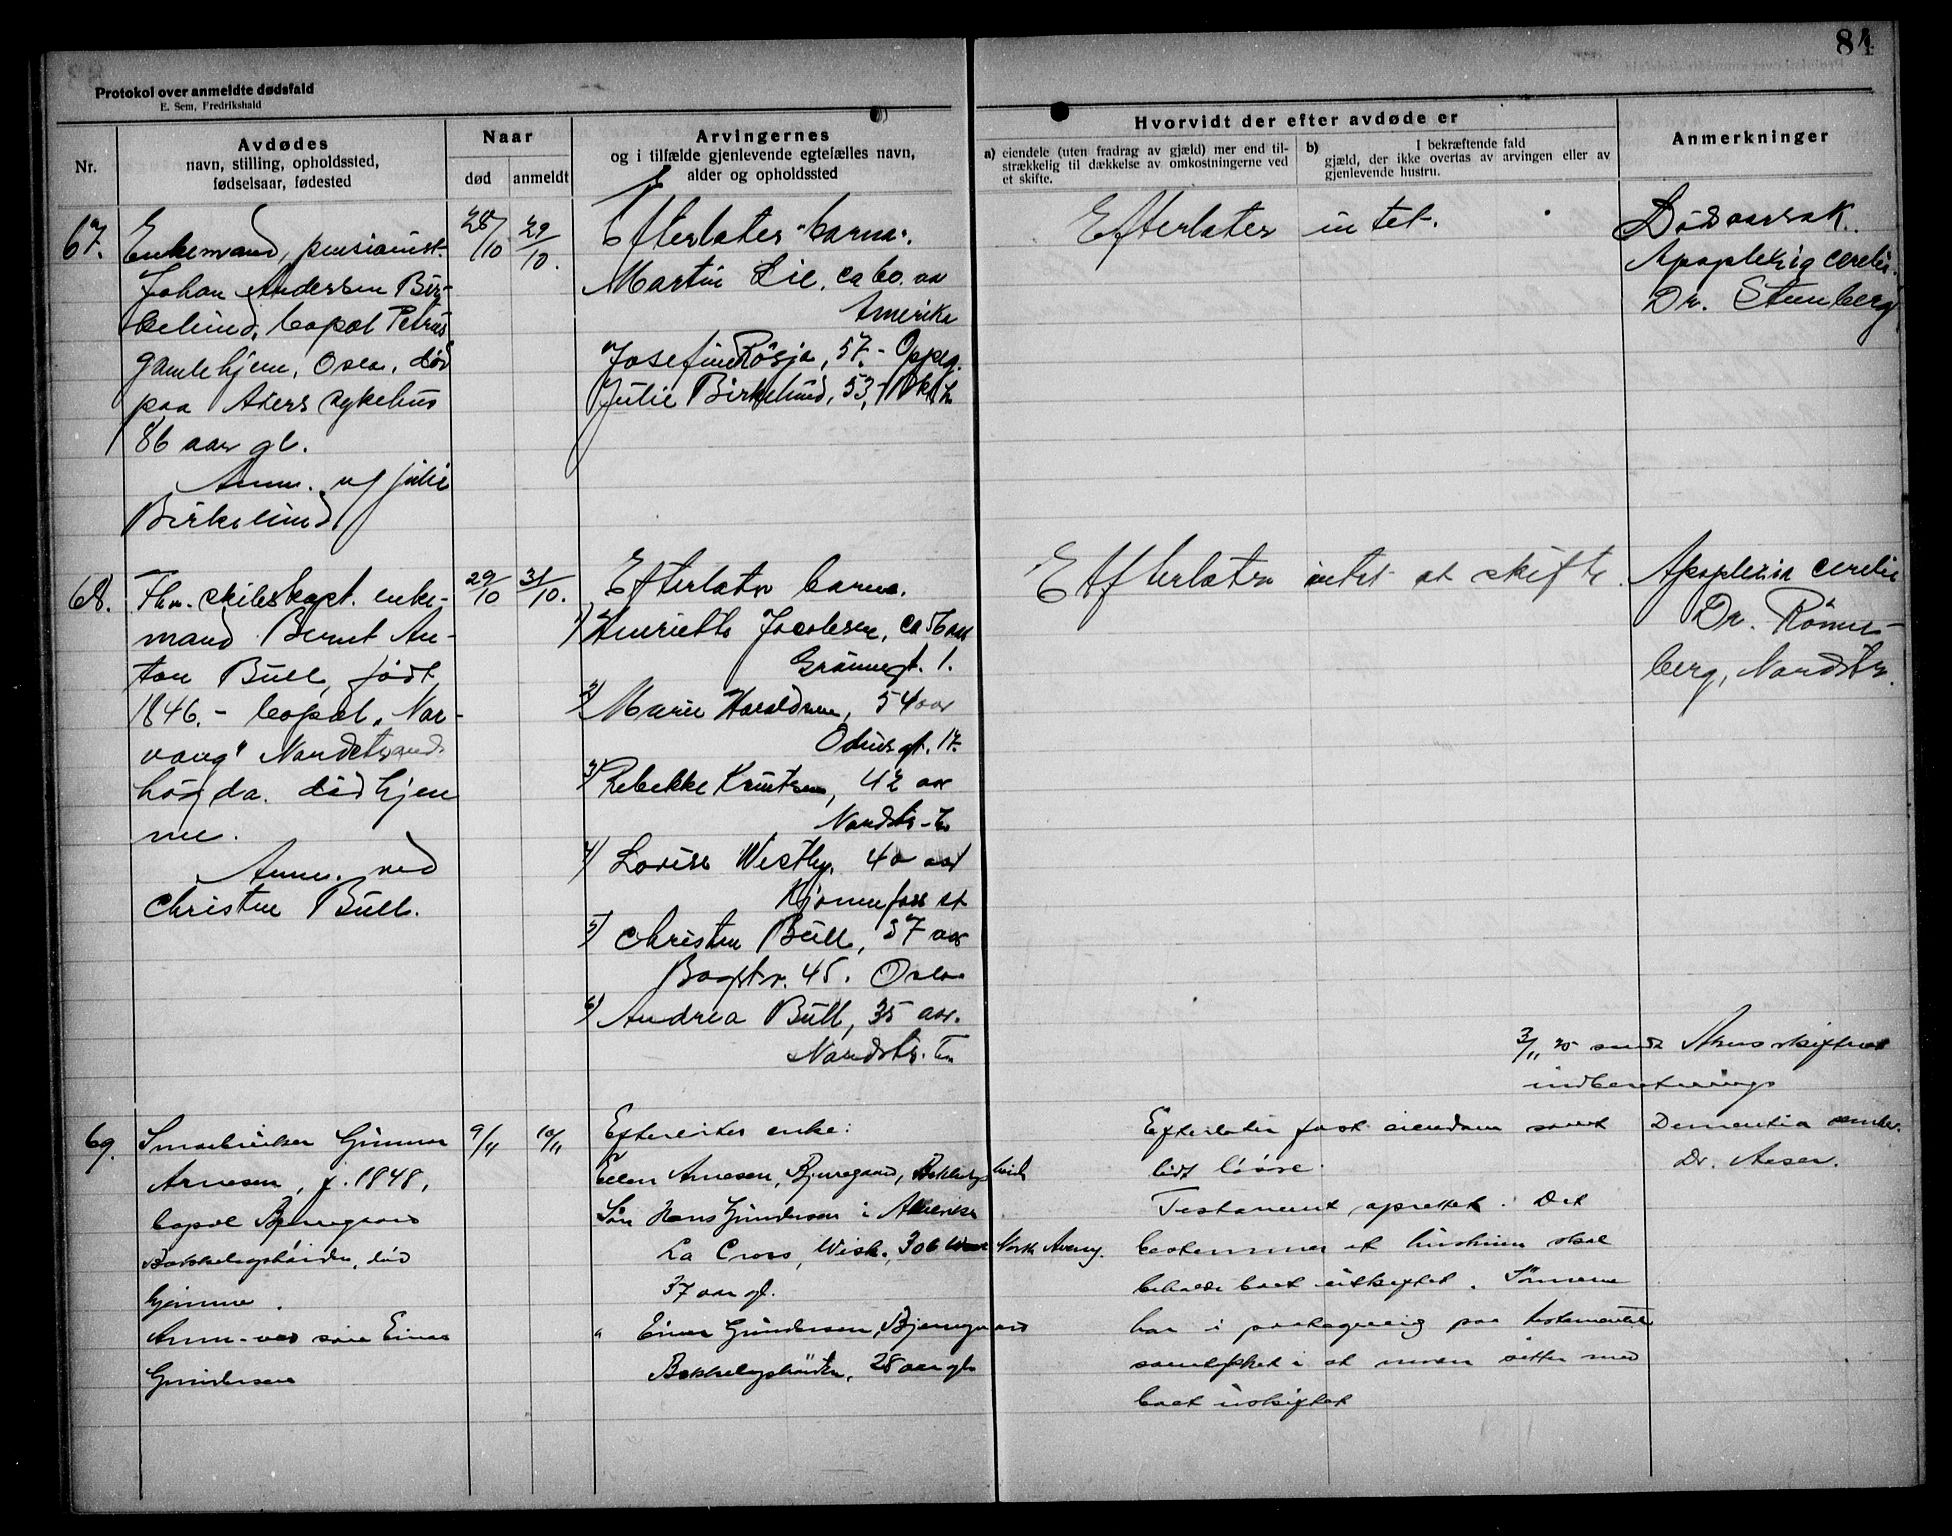 84
Protokol over anmeldte dødsfald
E. Sem, Fredrikshald
Nr.
Avdødes
navn, stilling, opholdssted,
fødselsaar, fødested
Naar
død
anmeldt
Arvingernes
og i tilfælde gjenlevende egtefælles navn,
alder og opholdssted
Hvorvidt der efter avdøde er
a) eiendele (uten fradrag av gjæld) mer end til-
strækkelig til dækkelse av omkostningerne ved
et skifte.
b) I bekræftende fald
gjæld, der ikke overtas av arvingen eller av
gjenlevende hustru.
Anmerkninger
67.
Enkemand, pensionist.
Johan Andersen Bir-
kelund, bopæl Petrus
gamlehjem, Oslo, død
paa Akers sykehus
86 aar gl.
Anm. v/ Julie
Birkelund
28/10
29/10.
Efterlater barna.
Martin Lie, ca 60. aa
Amerika
Josefine Røsja, 57.- Oppeg.
Julie Birkelund, 53,-
Efterlater intet.
Dødsaarsak.
Apoplexia cerebri.
Dr. Stenberg
68.
Fhv. skibskapt. enke-
mand Bernt An-
ton Bull, født
1846. - bopæl "Nor-
vang" Nordstrands
høgda. død hjem
me.
Anm. ved
Christen Bull.
29/10
31/10.
Efterlater barna.
1) Henriette Jacobsen, ca 56 aar
Grønnegt. 1.
2) Marie Haraldsen, 54 aar
Odinsgt. 17.
3) Rebekke Knutsen, 42 aar
Nordstr.
4) Lovise Westby. 40 aar
st
5) Christen Bull, 37 aar
Bogstv. 45. Oslo
6) Andrea Bull, 35 aar.
Nordstr.
Efterlater intet at skifte.
Apoplexia cerebri
Dr. Rønne-
berg, Nordstr.
3/11 25 sendt Akers skifteret
indberetning
69.
Smaabruker Gunnar
Arnesen, f. 1848,
bopæl Bjerregaard
Bækkelagshøiden, død
hjemme.
Anm. ved søn Einar
Gundersen
9/11
10/11
Efterlater enke:
Ellen Arnesen, Bjerregaard,
Søn Hans Gundersen i Amerika
La Cross, Wisk, 306 North Aveny.
37 aar gl.
" Einar Gundersen, Bjerregaard
Bækkelagshøiden, 28 aar gl.
Efterlater fast eiendom samt
lidt løsøre.
Testament oprettet. Det
bestemmer at hustruen skal
beholde boet uskiftet. Sønnene
har i paategning paa testamentet
samtykket i at moren sitter med
boet uskiftet
Dementia senilis.
Dr. Aaser.